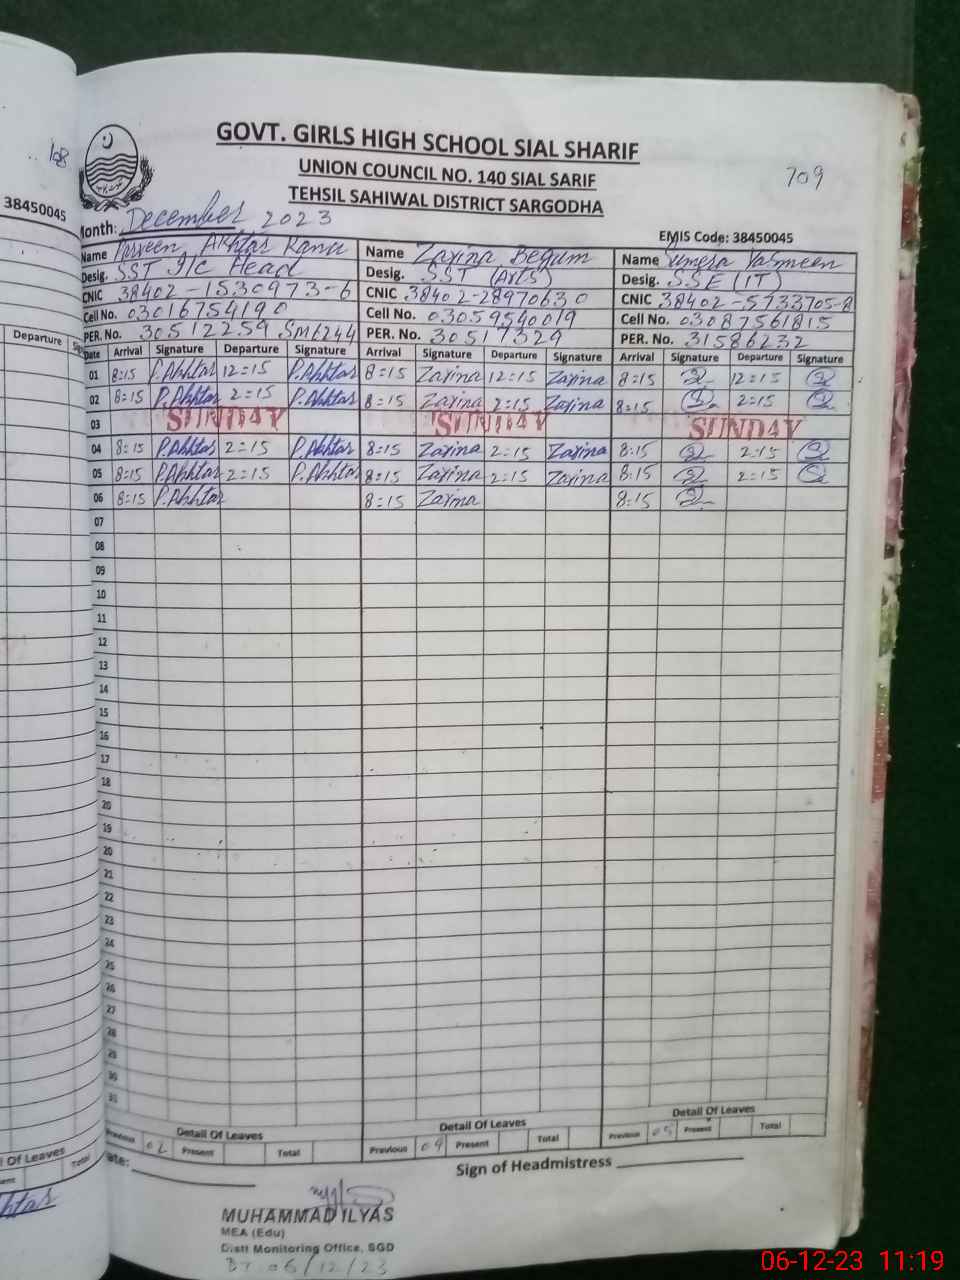 108
38450045
Departure
GOVT. GIRLS HIGH SCHOOL SIAL SHARIF
UNION COUNCIL NO. 140 SIAL SARIF
TEHSIL SAHIWAL DISTRICT SARGODHA
709
Month: December 2023
EMIS Code: 38450045
Name Parveen Akhtar Rana Name Zarina Begum Name Sumera Yasmeen
Desig. SST I/c Head Desig. SST (Arts) Desig. SSE (IT)
CNIC 38402-1530973-6 CNIC 38402-2897063 0 CNIC 38402-5733705-8
Cell No. 03016754190 Cell No. 03059540019 Cell No. 03087561815
PER. No. 30512259 SM6244 PER. No. 30517329 PER. No. 31586232
Date Arrival Signature Departure Signature Arrival Signature Departure Signature Arrival Signature Departure Signature
01 8:15 P.Akhtar 12:15 P.Akhtar 8:15 Zarina 12:15 Zarina 8:15 12:15
02 8:15 P.Akhtar 2:15 P.Akhtar 8:15 Zarina 2:15 Zarina 8:15 2:15
03 SUNDAY SUNDAY SUNDAY
04 8:15 P.Akhtar 2:15 P.Akhtar 8:15 Zarina 2:15 Zarina 8:15 2:15
05 8:15 P.Akhtar 2:15 P.Akhtar 8:15 Zarina 2:15 Zarina 8:15 2:15
06 8:15 P.Akhtar 8:15 Zarina 8:15
07
08
09
10
11
12
13
14
15
16
17
18
20
19
20
21
22
23
24
25
26
27
28
29
30
31
Detail Of Leaves Detail Of Leaves Detail Of Leaves
Previous 02 Present Total Previous 09 Present Total Previous 05 Present Total
Of Leaves
Total
Date:
Sign of Headmistress
MUHAMMAD ILYAS
MEA (Edu)
Distt Monitoring Office, SGD
06/12/23
06-12-23 11:19